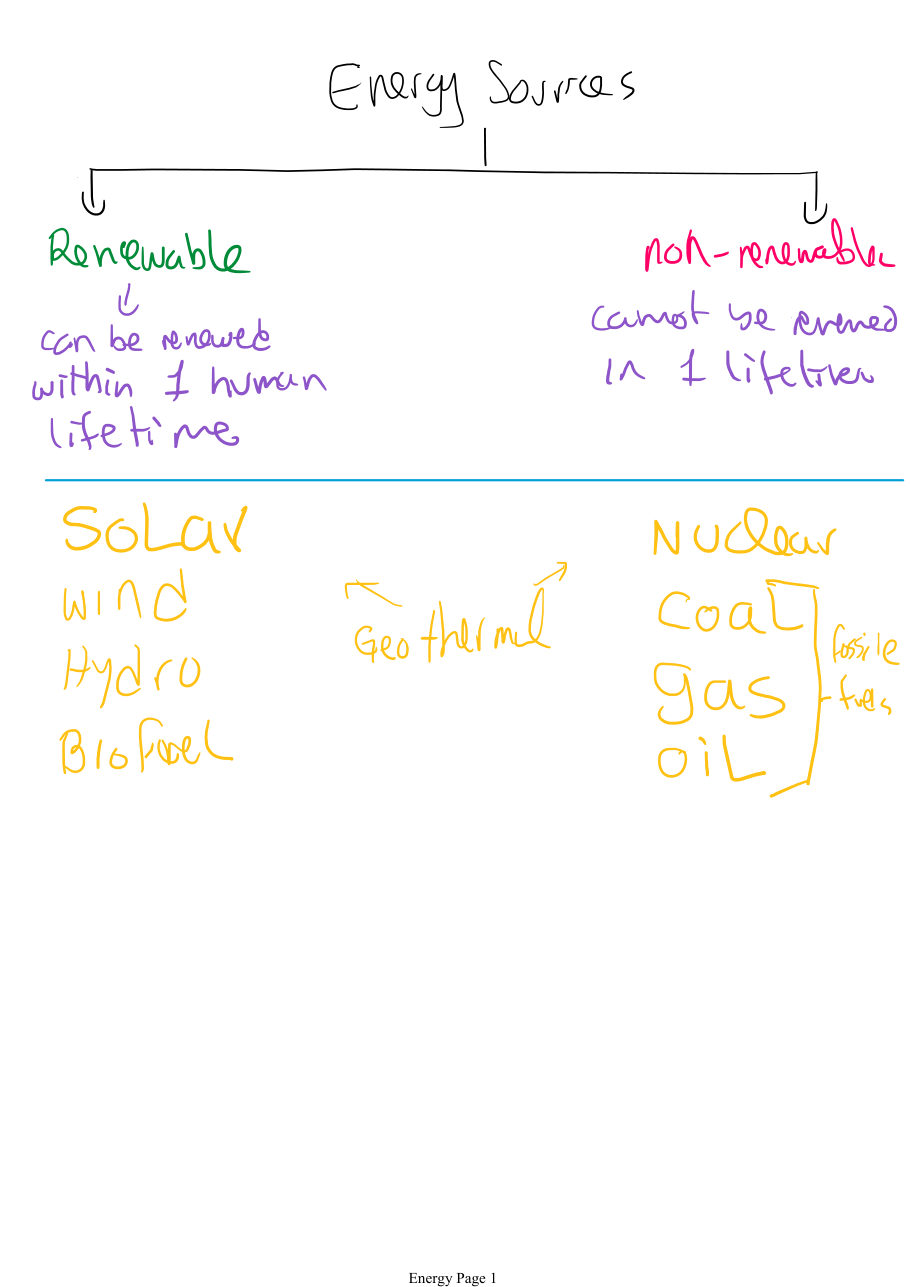 Energy Sources
Renewable
can be renewed
within 1 human
lifetime
non-renewable
cannot be renewed
in 1 lifetime
Solar
wind
Hydro
Biofuel
Geothermal
Nuclear
coal
gas
oil
fossile
fuels
Energy Page 1